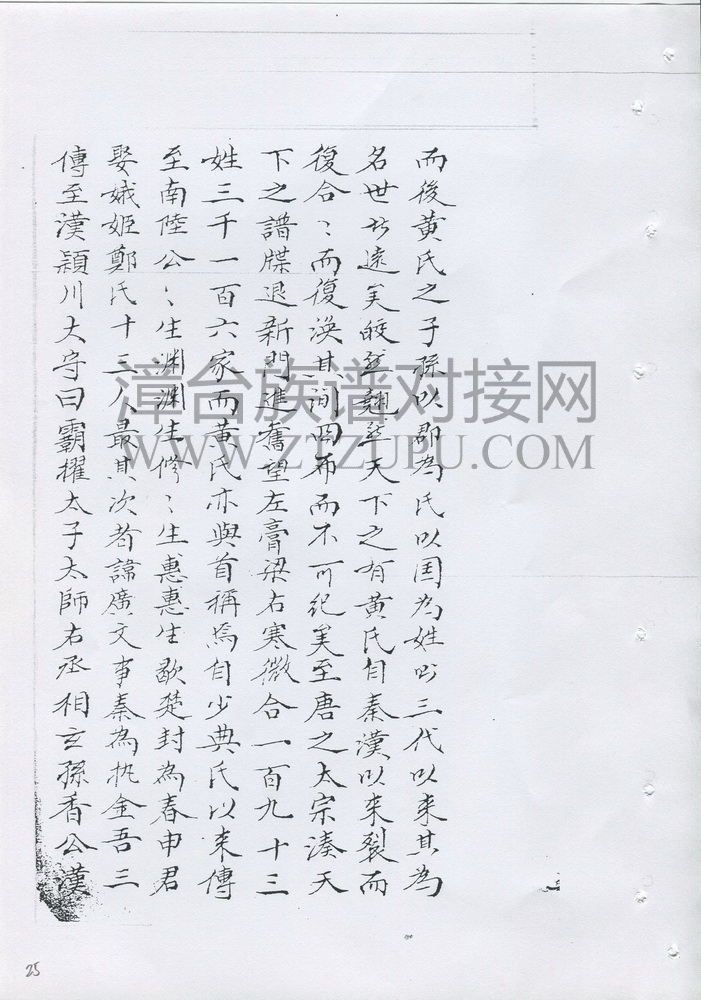 而後黃氏之子孫以郡為氏以囯為姓則三代以来其為
名世於遠矣皎然翹然天下之有黃氏自秦漢以来裂而
復合〻而復渙其間因布而不可紀矣至唐之太宗湊天
下之譜牒退新門進舊望左膏梁右寒微合一百九十三
姓三千一百六家而黃氏亦與首稱焉自少典氏以来傳
至南陸公〻生渊渊生修〻生惠惠生歇楚封為春申君
娶娥姬鄭氏十三人最其次者諱廣文事秦為执金吾三
傳至漢穎川大守曰霸擢太子太師右丞相玄孫香公漢
漳台族谱对接网
WWW.ZTZUPU.COM
25